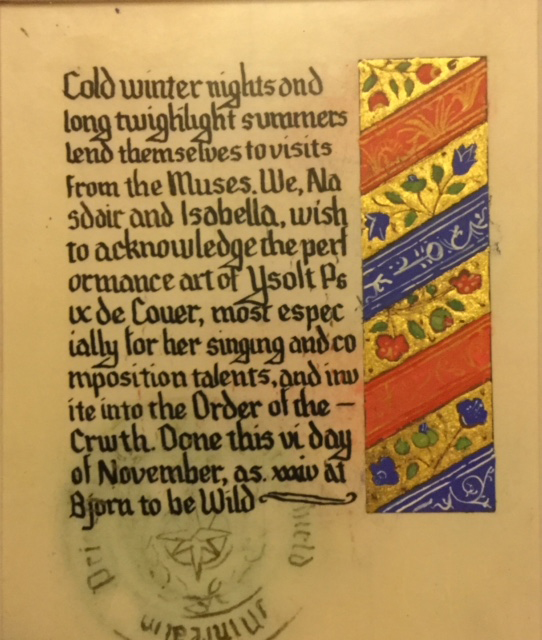 Cold winter nights and
long twighlight summers
lend themselves to visits
from the Muses. We, Na
sdair and Isabella, wish
to acknowledge the perf
ormance art of Ysolt
de Couer, most espec
ially for her singing and co
mposition talents, and inv
ite into the Order of the —
Crwth. Done this vi day
of November, as. xxiv at
Bjorn to be Wild